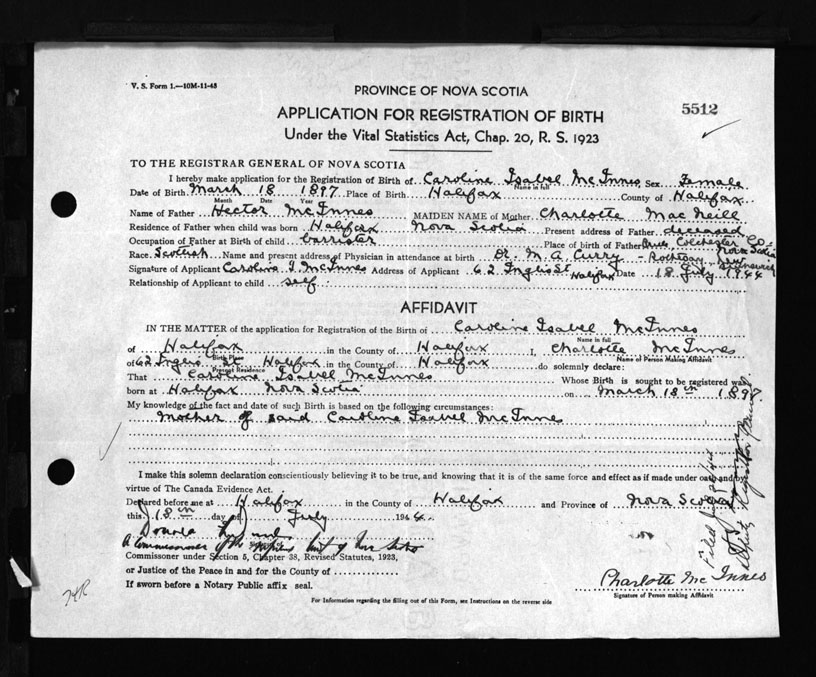 V. S. Form 1.—10M-11-43
PROVINCE OF NOVA SCOTIA
5512
APPLICATION FOR REGISTRATION OF BIRTH
Under the Vital Statistics Act, Chap. 20, R. S. 1923
TO THE REGISTRAR GENERAL OF NOVA SCOTIA
I hereby make application for the Registration of Birth of Caroline Isabel McInnes Sex Female
Name in full
Date of Birth March 18 1897 Place of Birth Halifax County of Halifax
Month Date Year
Name of Father Hector McInnes MAIDEN NAME of Mother Charlotte MacNeill
Residence of Father when child was born Halifax Nova Scotia Present address of Father deceased
Occupation of Father at Birth of child barrister Place of birth of Father Colchester Co. Nova Scotia
Race Scottish Name and present address of Physician in attendance at birth Dr. M. A. Curry - Rothesay New Brunswick
Signature of Applicant Caroline I. McInnes Address of Applicant 62 Inglis St Halifax Date 18 July 1944
Relationship of Applicant to child self
AFFIDAVIT
IN THE MATTER of the application for Registration of the Birth of Caroline Isabel McInnes
Name in full
of Halifax in the County of Halifax I, Charlotte McInnes
Birth Place Name of Person Making Affidavit
of 62 Inglis St Halifax in the County of Halifax do solemnly declare:
Present Residence
That Caroline Isabel McInnes Whose Birth is sought to be registered was
born at Halifax Nova Scotia on March 18th 1897
My knowledge of the fact and date of such Birth is based on the following circumstances:
Mother of said Caroline Isabel McInnes
I make this solemn declaration conscientiously believing it to be true, and knowing that it is of the same force and effect as if made under oath and by
virtue of The Canada Evidence Act.
Declared before me at Halifax in the County of Halifax and Province of Nova Scotia
this 18th day of July 1944
A Commissioner of the Supreme Court of Nova Scotia
Commissioner under Section 5, Chapter 38, Revised Statutes, 1923,
or Justice of the Peace in and for the County of
If sworn before a Notary Public affix seal.
Charlotte McInnes
Signature of Person making Affidavit
For Information regarding the filling out of this Form, see Instructions on the reverse side